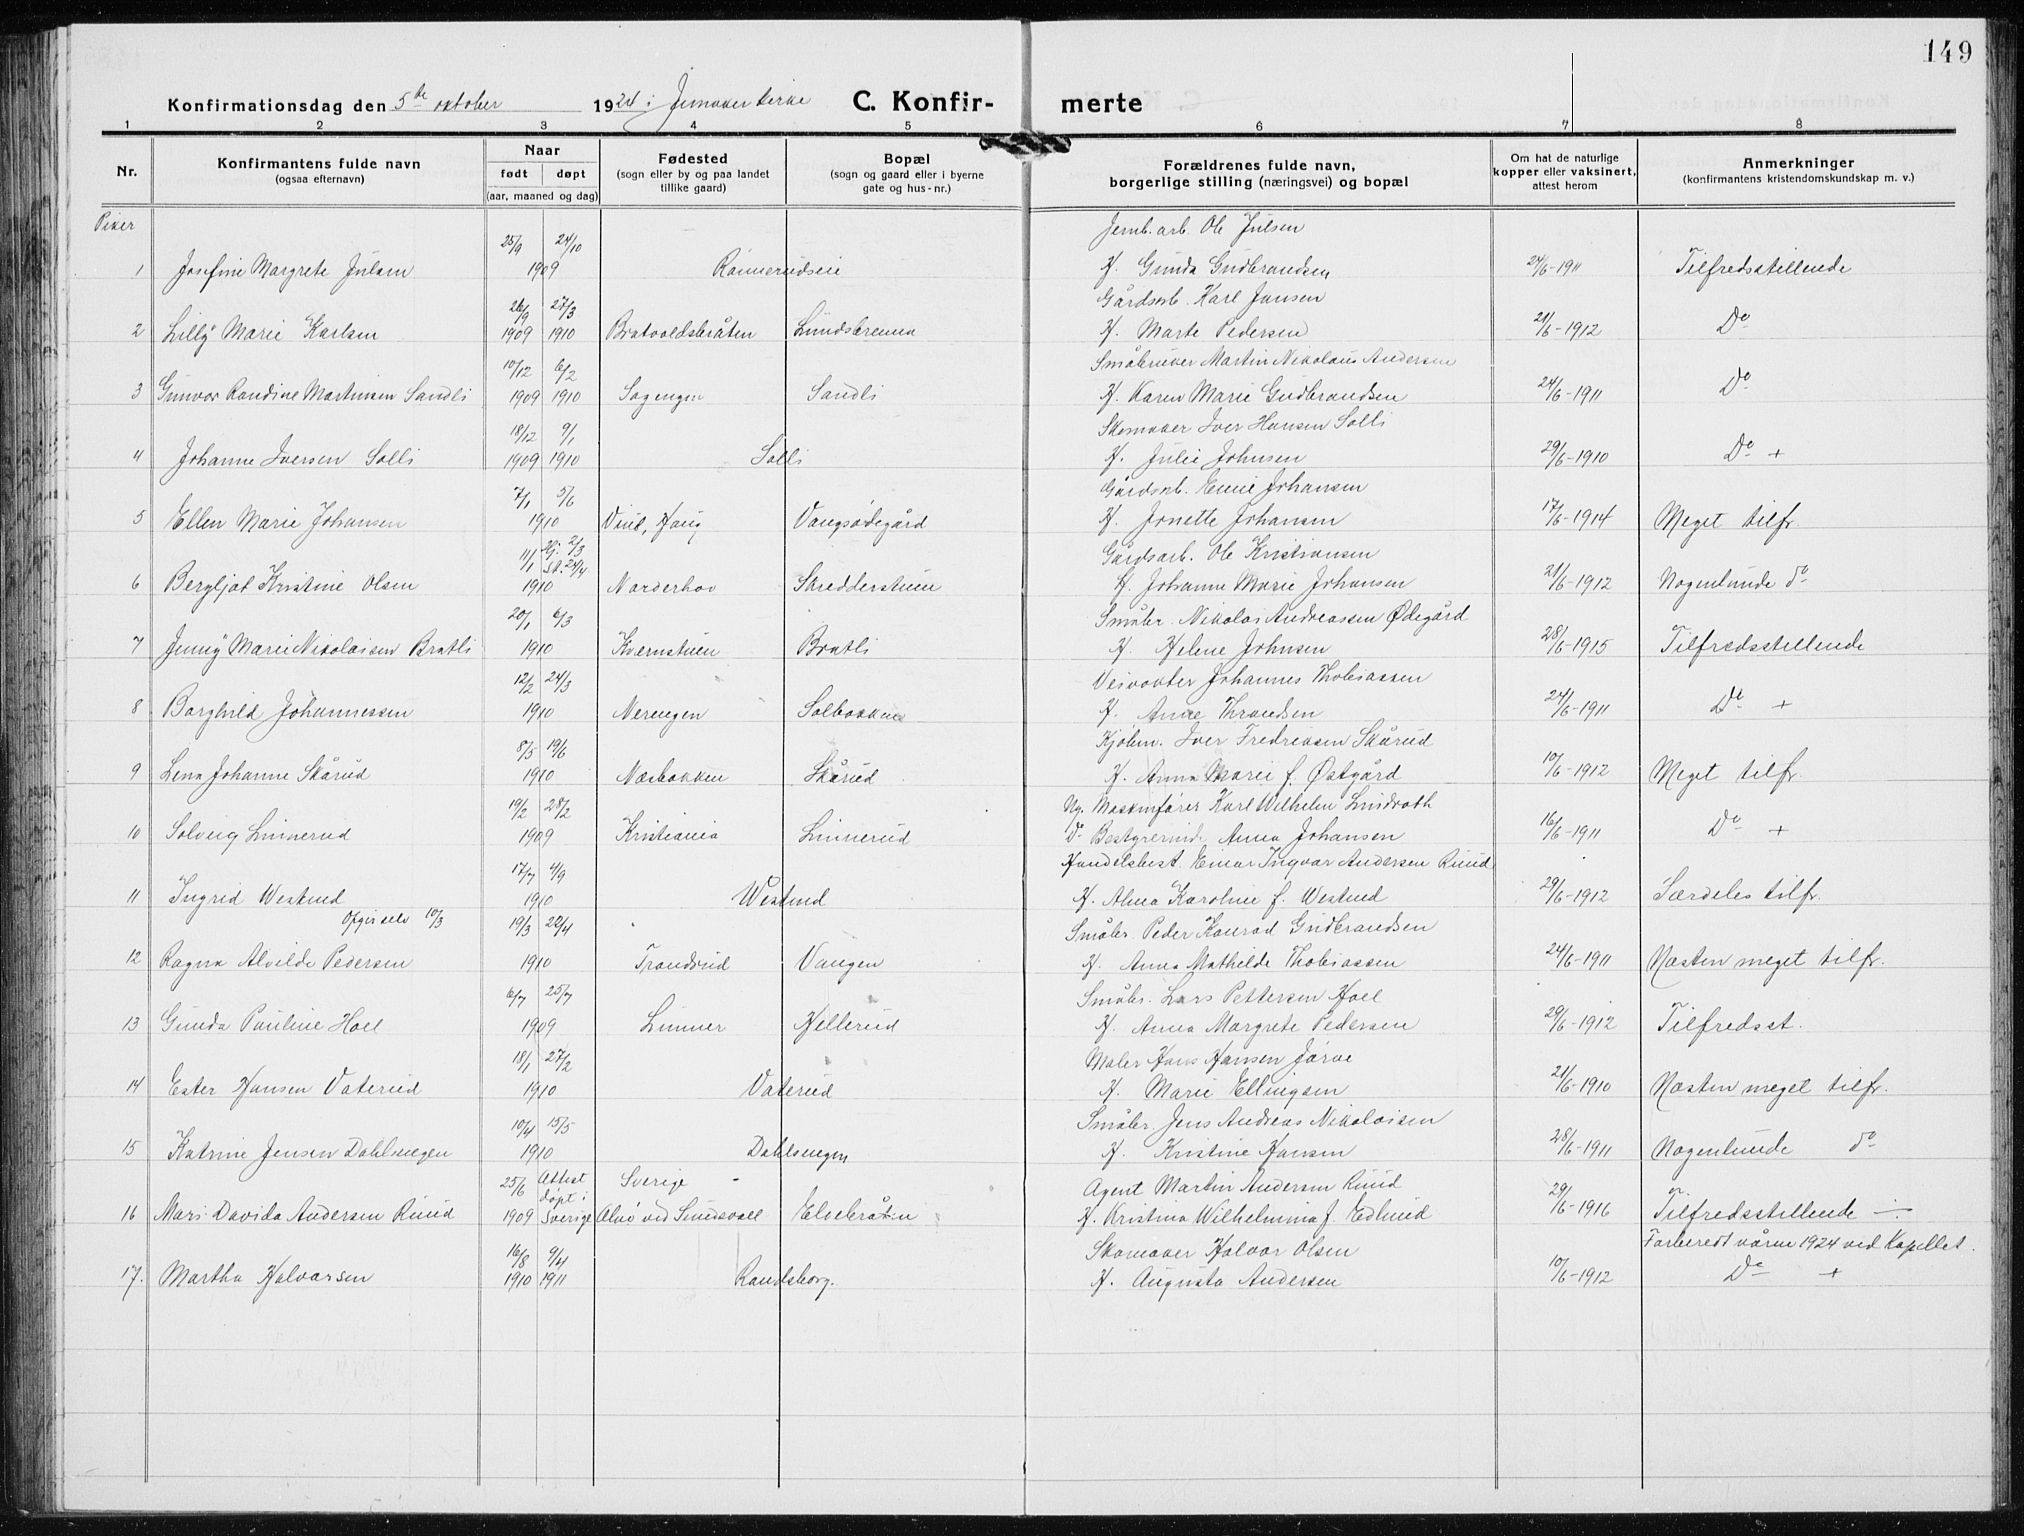 149
Konfirmationsdag den 5te oktober 1924 i Jevnaker kirke C. Konfir- merte
1 2 3 4 5 6 7 8
Nr. Konfirmantens fulde navn (ogsaa efternavn) Naar født døpt (aar, maaned og dag) Fødested (sogn eller by og paa landet tillike gaard) Bopæl (sogn og gaard eller i byerne gate og hus-nr.) Forældrenes fulde navn, borgerlige stilling (næringsvei) og bopæl Om hat de naturlige kopper eller vaksinert, attest herom Anmerkninger (konfirmantens kristendomskundskap m. v.)
Piker
25/9 24/10 Jernb. arb. Ole Julsen
1 Josefine Margrete Julsen 1909 Rønnerudseie H. Gunda Gudbrandsen 24/6-1911 Tilfredsstillende
26/9 27/3 Gårdsarb. Karl Jansen
2 Lilly Marie Karlsen 1909 1910 Bratvoldsbråten Lundsbrenna H. Marte Pedersen 21/6-1912 Do
10/12 6/2 Småbruker Martin Nikolaus Andersen
3 Gunvor Randine Martinsen Sandli 1909 1910 Sagengen Sandli H. Karen Marie Gudbrandsen 24/6-1911 Do
18/12 9/1 Skomaker Iver Hansen Solli
4 Johanne Iversen Solli 1909 1910 Solli H. Julie Johnsen 29/6-1910 Do +
7/1 5/6 Gårdsarb. Emil Johansen
5 Ellen Marie Johansen 1910 Viul, Haug Vangsødegård H. Jonette Johansen 17/6-1914 Meget tilfr.
11/1 Hj. 2/3 St. 24/4 Gårdsarb. Ole Kristiansen
6 Bergljot Kristine Olsen 1910 Norderhov Skredderstuen H. Johanne Marie Johansen 21/6-1912 Nogenlunde do
20/1 6/3 Småbr. Nikolai Andreassen Ødegård
7 Jenny Marie Nikolaisen Bratli 1910 Kvernstuen Bratli H. Helene Johnsen 28/6-1915 Tilfredsstillende
12/2 24/3 Veivokter Johannes Thobiassen
8 Borghild Johannessen 1910 Nerengen Solbakken H. Anne Throndsen 24/6-1911 Do +
8/5 19/6 Kjøbm. Iver Fredriksen Skårud
9 Lena Johanne Skårud 1910 Nesbakken Skårud H. Anna Marie f. Østgård 10/6-1912 Meget tilfr.
19/2 28/2 Ug. Maskinfører Karl Wilhelm Lindroth
10 Solveig Linnerud 1909 Kristiania Linnerud Do Bestyrerinde Anna Johansen 16/6-1911 Do +
17/7 4/9 Handelsbest. Einar Ingvar Andersen Ruud
11 Ingrid Westrud 1910 Westrud H. Alma Karoline f. Westrud 29/6-1912 Særdeles tilfr.
Opgis selv 10/3 19/3 22/4 Småbr. Peder Konrad Gudbrandsen
12 Ragna Alvilde Pedersen 1910 Trandsrud Vangen H. Anna Mathilde Thobiassen 24/6-1911 Næsten meget tilfr.
6/7 25/7 Småbr. Lars Pettersen Hoel
13 Gunda Pauline Hoel 1909 Lunner Hellerud H. Anna Margrete Pedersen 29/6-1912 Tilfredsst.
18/1 27/2 Maler Hans Hansen
14 Ester Hansen Vaterud 1910 Vaterud H. Marie Ellingsen 21/6-1910 Næsten meget tilfr.
10/4 15/5 Småbr. Jens Andreas Nikolaisen
15 Katrine Jensen Dahlsengen 1910 Dahlsengen H. Kristine Hansen 28/6-1911 Nogenlunde do
25/6 Attest døpt i Sverige Agent Martin Andersen Ruud
16 Mari Davida Andersen Ruud 1909 Sverige Alnö ved Sundsvall Elvebråten H. Kristina Wilhelmina f. Edlund 29/6-1916 Tilfredsstillende
16/8 9/4 Skomaker Halvor Olsen Forberedt våren 1924 ved Kapellet.
17. Martha Halvorsen 1910 1911 Randsborg. H. Augusta Andersen 10/6-1912 Do +